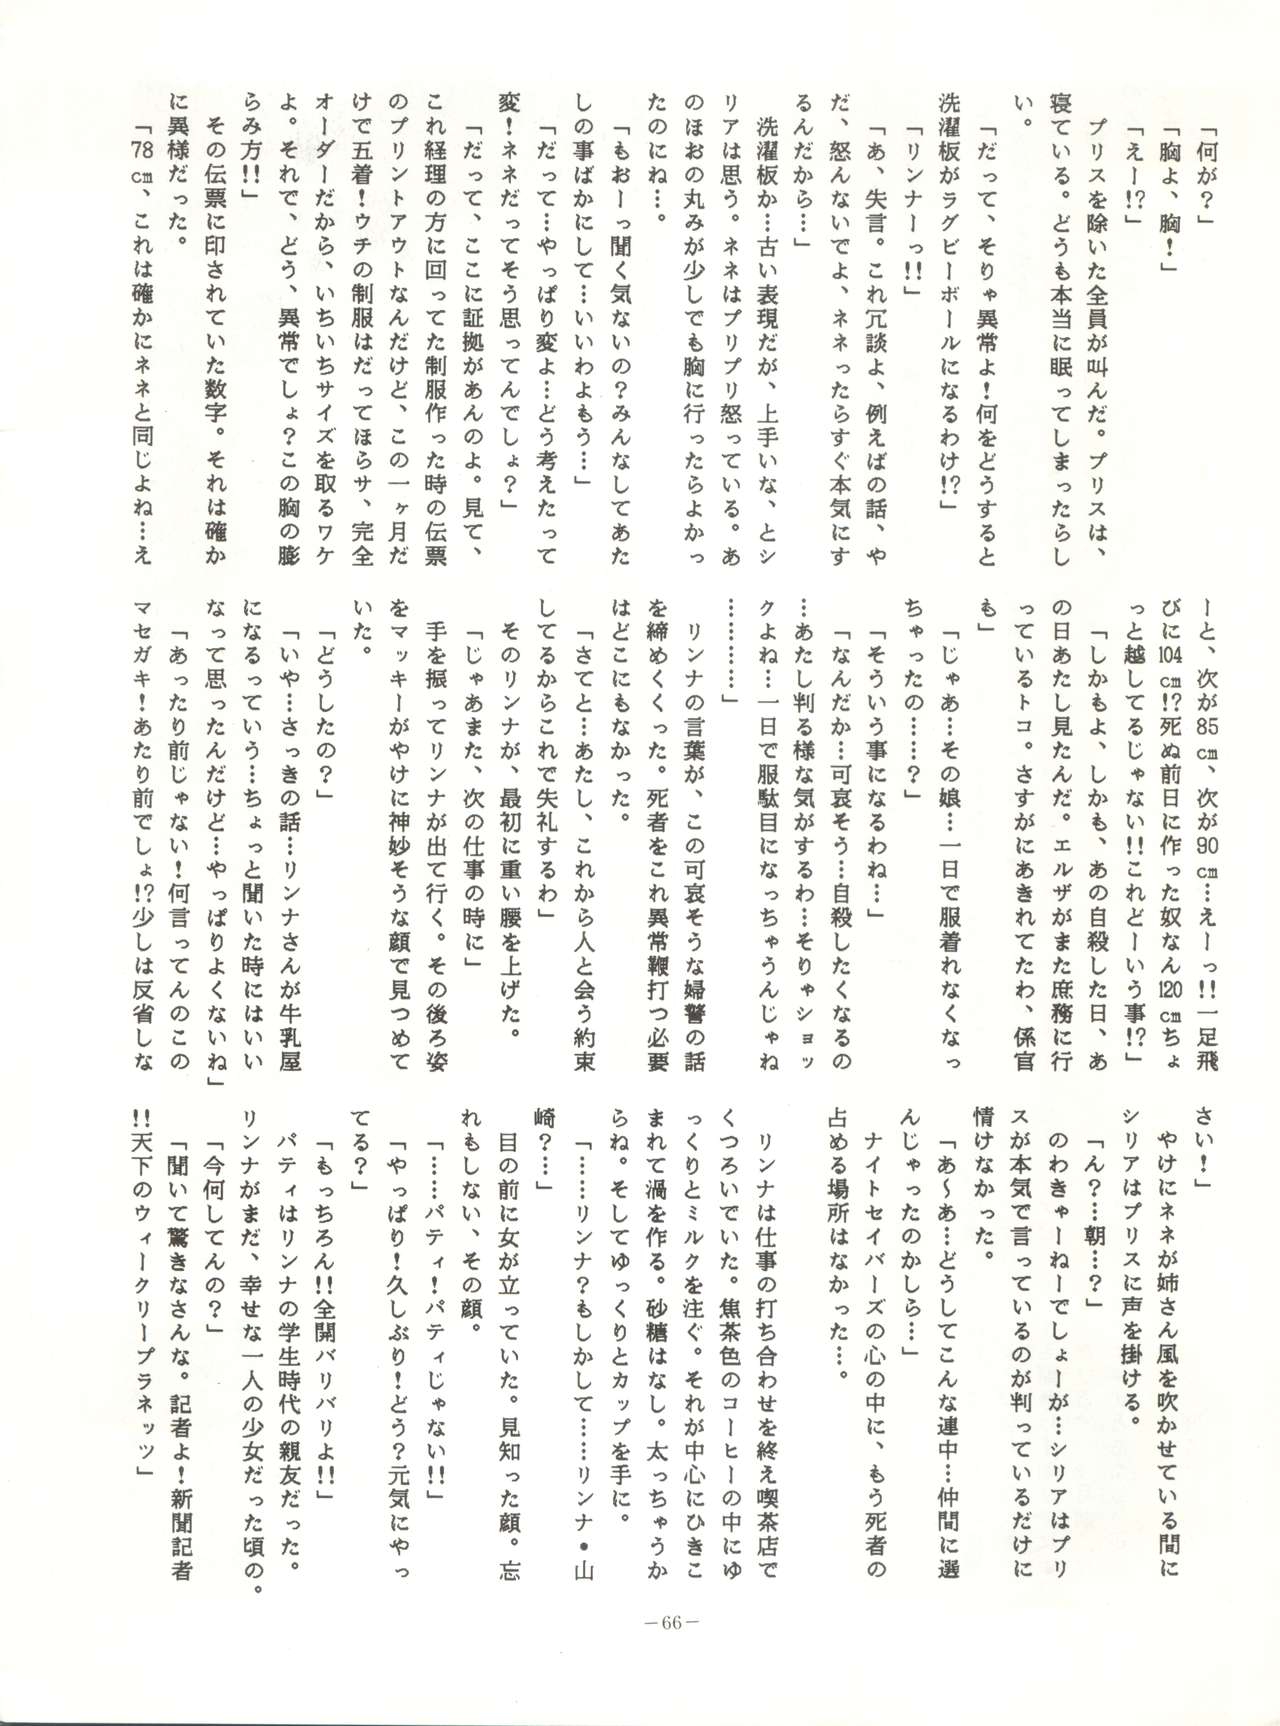 「何が?」
「胸よ、胸!」
「えー!?」
　プリスを除いた全員が叫んだ。プリスは、
寝ている。どうも本当に眠ってしまったらし
い。
「だって、そりゃ異常よ!何をどうすると
洗濯板がラグビーボールになるわけ!?」
「リンナーっ!!」
「あ、失言。これ冗談よ、例えばの話、や
だ、怒んないでよ、ネネったらすぐ本気にす
るんだから…」
　洗濯板か…古い表現だが、上手いな、とシ
リアは思う。ネネはプリプリ怒っている。あ
のほおの丸みが少しでも胸に行ったらよかっ
たのにね…。
「もおーっ聞く気ないの?みんなしてあた
しの事ばかにして…いいわよもう…」
「だって…やっぱり変よ…どう考えたって
変!ネネだってそう思ってんでしょ?」
「だって、ここに証拠があんのよ。見て、
これ経理の方に回ってた制服作った時の伝票
のプリントアウトなんだけど、この一ヶ月だ
けで五着!ウチの制服はだってほらサ、完全
オーダーだから、いちいちサイズを取るワケ
よ。それで、どう、異常でしょ?この胸の膨
らみ方!!」
　その伝票に印されていた数字。それは確か
に異様だった。
「78㎝、これは確かにネネと同じよね…え
ーと、次が85㎝、次が90㎝…えーっ!!一足飛
びに104㎝!?死ぬ前日に作った奴なん120㎝ちょ
っと越してるじゃない!!これどーいう事!?」
「しかもよ、しかも、あの自殺した日、あ
の日あたし見たんだ。エルザがまた庶務に行
っているトコ。さすがにあきれてたわ、係官
も」
「じゃあ…その娘…一日で服着れなくなっ
ちゃったの……?」
「そういう事になるわね…」
「なんだか…可哀そう…自殺したくなるの
…あたし判る様な気がするわ…そりゃショッ
クよね…一日で服駄目になっちゃうんじゃね
…………」
　リンナの言葉が、この可哀そうな婦警の話
を締めくくった。死者をこれ異常鞭打つ必要
はどこにもなかった。
「さてと…あたし、これから人と会う約束
してるからこれで失礼するわ」
　そのリンナが、最初に重い腰を上げた。
「じゃあまた、次の仕事の時に」
　手を振ってリンナが出て行く。その後ろ姿
をマッキーがやけに神妙そうな顔で見つめて
いた。
「どうしたの?」
「いや…さっきの話…リンナさんが牛乳屋
になるっていう…ちょっと聞いた時にはいい
なって思ったんだけど…やっぱりよくないね」
「あったり前じゃない!何言ってんのこの
マセガキ!あたり前でしょ!?少しは反省しな
さい!」
　やけにネネが姉さん風を吹かせている間に
シリアはプリスに声を掛ける。
「ん?…朝…?」
　のわきゃーねーでしょーが…シリアはプリ
スが本気で言っているのが判っているだけに
情けなかった。
「あ〜あ…どうしてこんな連中…仲間に選
んじゃったのかしら…」
　ナイトセイバーズの心の中に、もう死者の
占める場所はなかった…。
　リンナは仕事の打ち合わせを終え喫茶店で
くつろいでいた。焦茶色のコーヒーの中にゆ
っくりとミルクを注ぐ。それが中心にひきこ
まれて渦を作る。砂糖はなし。太っちゃうか
らね。そしてゆっくりとカップを手に。
「……リンナ?もしかして……リンナ・山
崎?…」
　目の前に女が立っていた。見知った顔。忘
れもしない、その顔。
「……パティ!パティじゃない!!」
「やっぱり!久しぶり!どう?元気にやっ
てる?」
「もっちろん!!全開バリバリよ!!」
　パティはリンナの学生時代の親友だった。
リンナがまだ、幸せな一人の少女だった頃の。
「今何してんの?」
「聞いて驚きなさんな。記者よ!新聞記者
!!天下のウィークリープラネッツ」
—66—